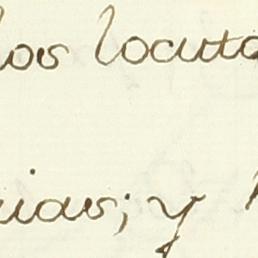 los locuto
uias; y